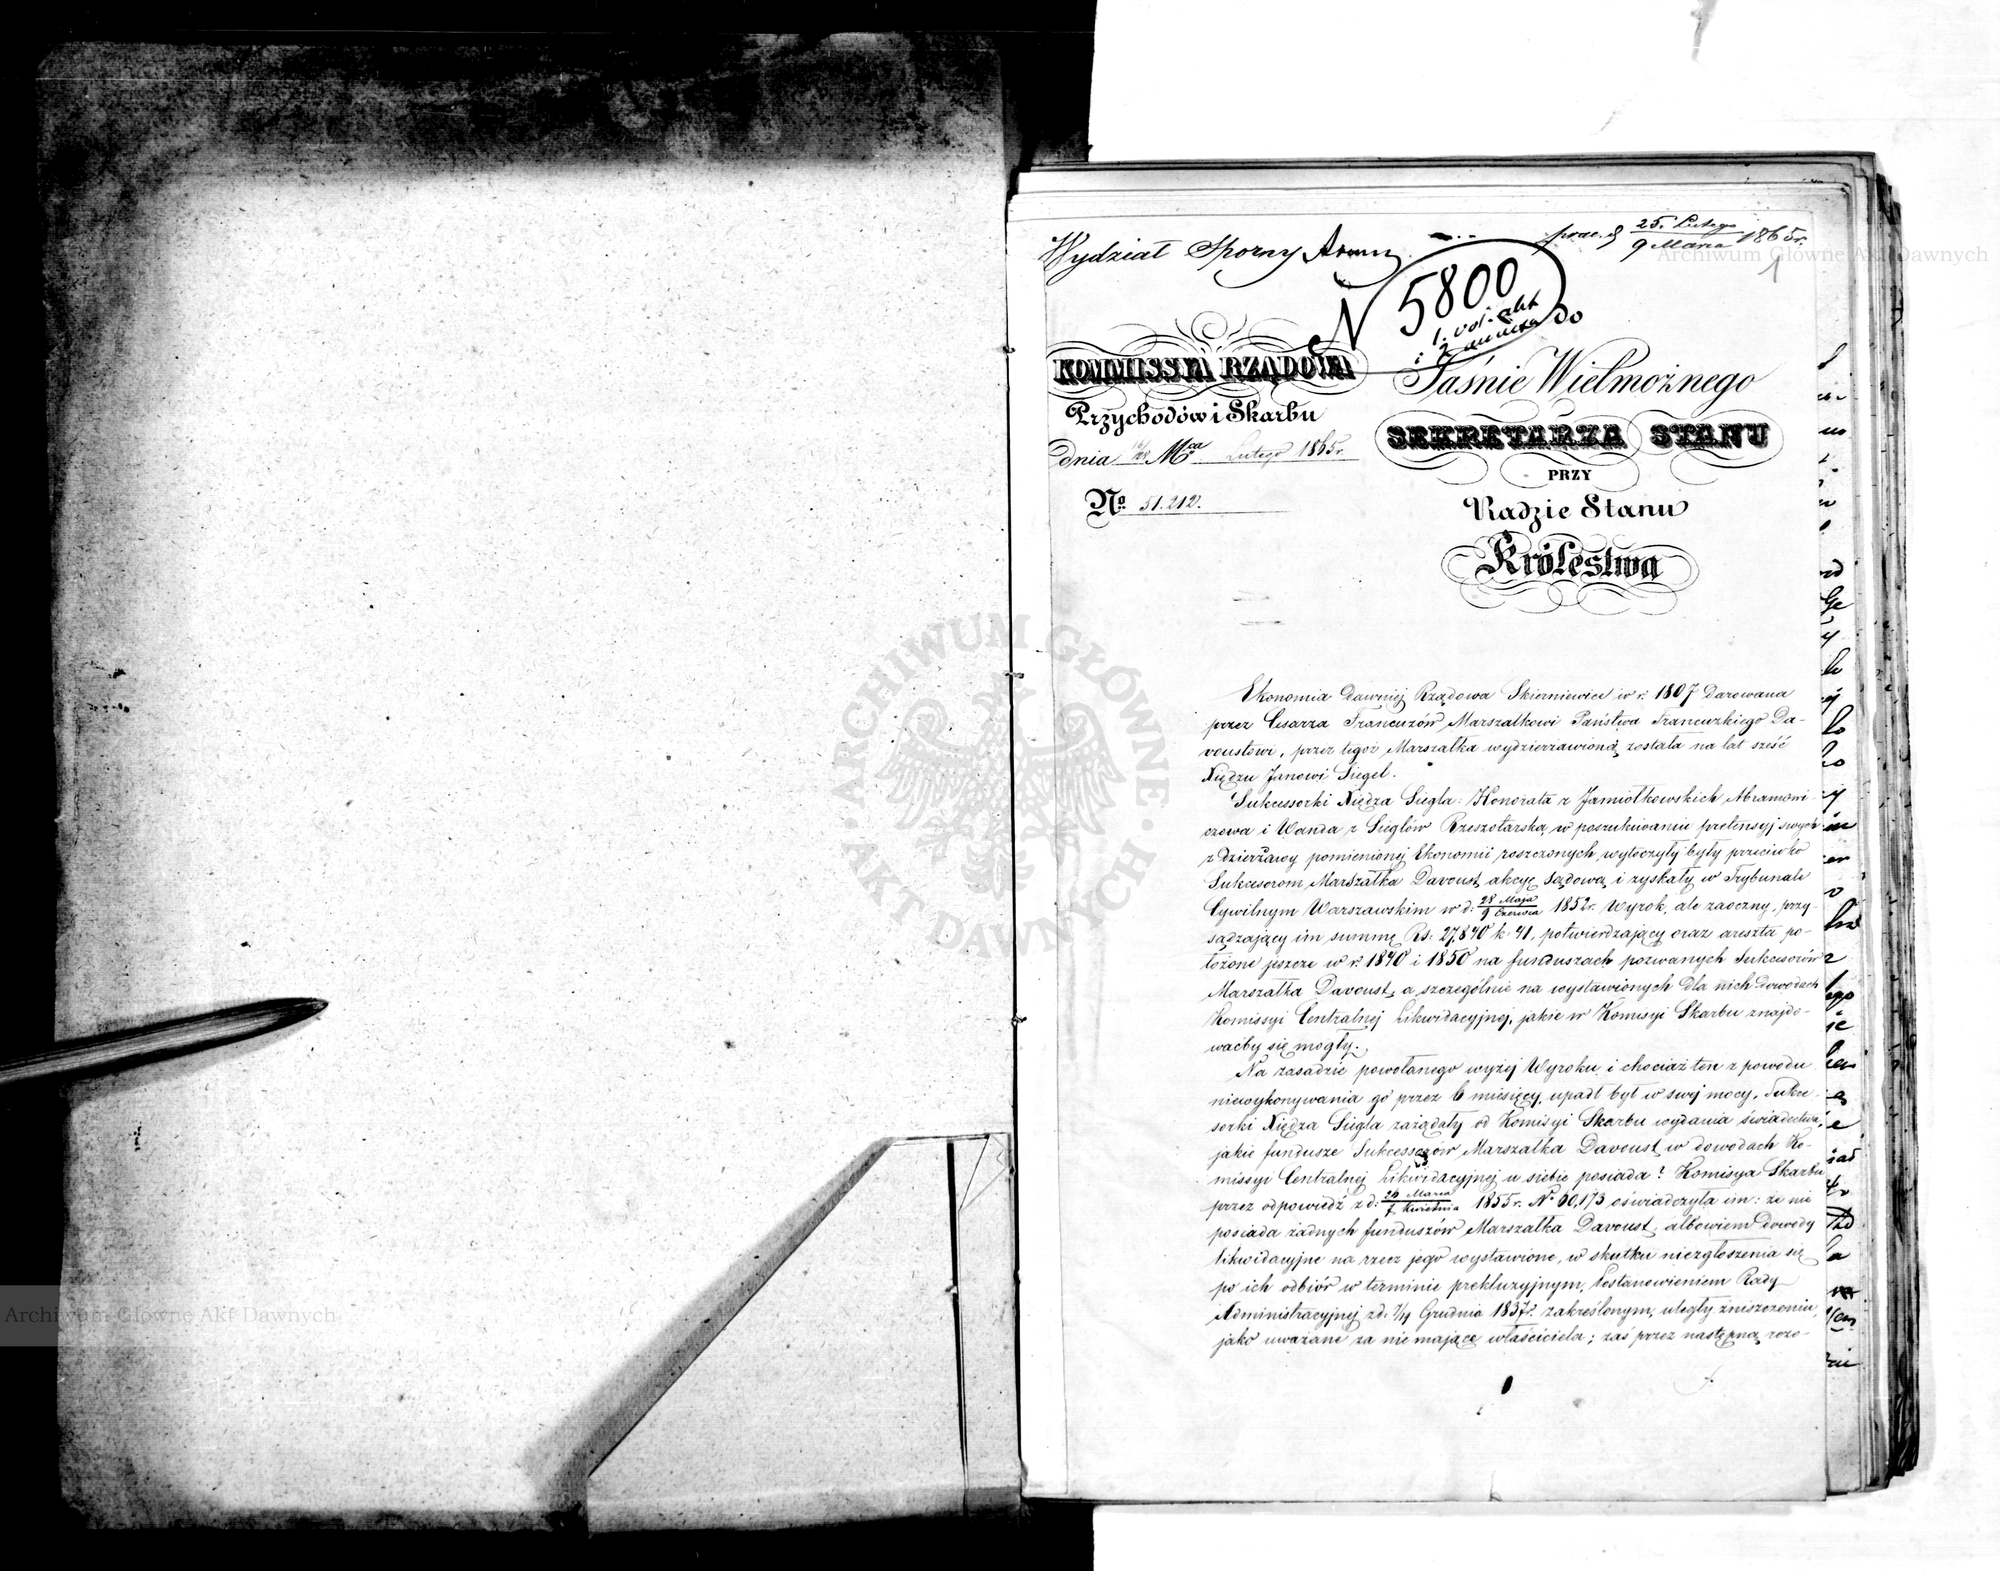 Wydział Sporny
25. Lutego
9 Marca 1865r.
1
N 5800
1. vol. akt
do
KOMMISSYA RZĄDOWA
Przychodów i Skarbu
dnia 16/28 Mca Lutego 1865r.
No 51.212.
Jaśnie Wielmożnego
SEKRETARZA STANU
PRZY
Radzie Stanu
Królestwa
Ekonomia dawniej Rządowa Skierniewice w r. 1807 darowana
przez Cesarza Francuzów Marszałkowi Państwa Francuzkiego Da-
voustowi, przez tegoż Marszałka wydzierżawioną została na lat sześć
Księdzu Janowi Siegel.
Sukcessorki Księdza Siegla: Honorata z Jamiołkowskich Abramowi-
czowa i Wanda z Sieglów Rzeszotarska, w poszukiwaniu pretensyj swych
z dzierżawy pomienionej Ekonomii roszczonych, wytoczyły były przeciwko
Sukcesorom Marszałka Davoust akcyę sądową i zyskały w Trybunale
Cywilnym Warszawskim w d: 28 Maja / 9 Czerwca 1852r. Wyrok, ale zaoczny, przy-
sądzający im summę Rs: 27,840 k: 41, potwierdzający oraz areszta po-
łożone jeszcze w r. 1840 i 1850 na funduszach pozwanych Sukcesorów
Marszałka Davoust, a szczególnie na wystawionych dla nich dowodach
Komissyi Centralnej Likwidacyjnej, jakie w Komisyi Skarbu znajdo-
waćby się mogły.
Na zasadzie powołanego wyżej Wyroku, i chociaż ten z powodu
niewykonywania go przez 6 miesięcy, upadł był w swej mocy, Sukce-
sorki Księdza Siegla zażądały od Komisyi Skarbu wydania świadectwa,
jakie fundusze Sukcessorów Marszałka Davoust w dowodach Ko-
missyi Centralnej Likwidacyjnej u siebie posiada? Komisya Skarbu
przez odpowiedź z d: 26 Marca / 7 Kwietnia 1855r. No 60,173 oświadczyła im: że nie
posiada żadnych funduszów Marszałka Davoust, albowiem dowody
likwidacyjne na rzecz jego wystawione, w skutku niezgłoszenia się
po ich odbiór w terminie prekluzyjnym, Postanowieniem Rady
Administracyjnej z d: Grudnia 1837r. zakreślonym, uległy zniszczeniu,
jako uważane za nie mające właściciela; zaś przez następną rezo-
ARCHIWUM GŁÓWNE AKT DAWNYCH
Archiwum Główne Akt Dawnych
Archiwum Główne Akt Dawnych